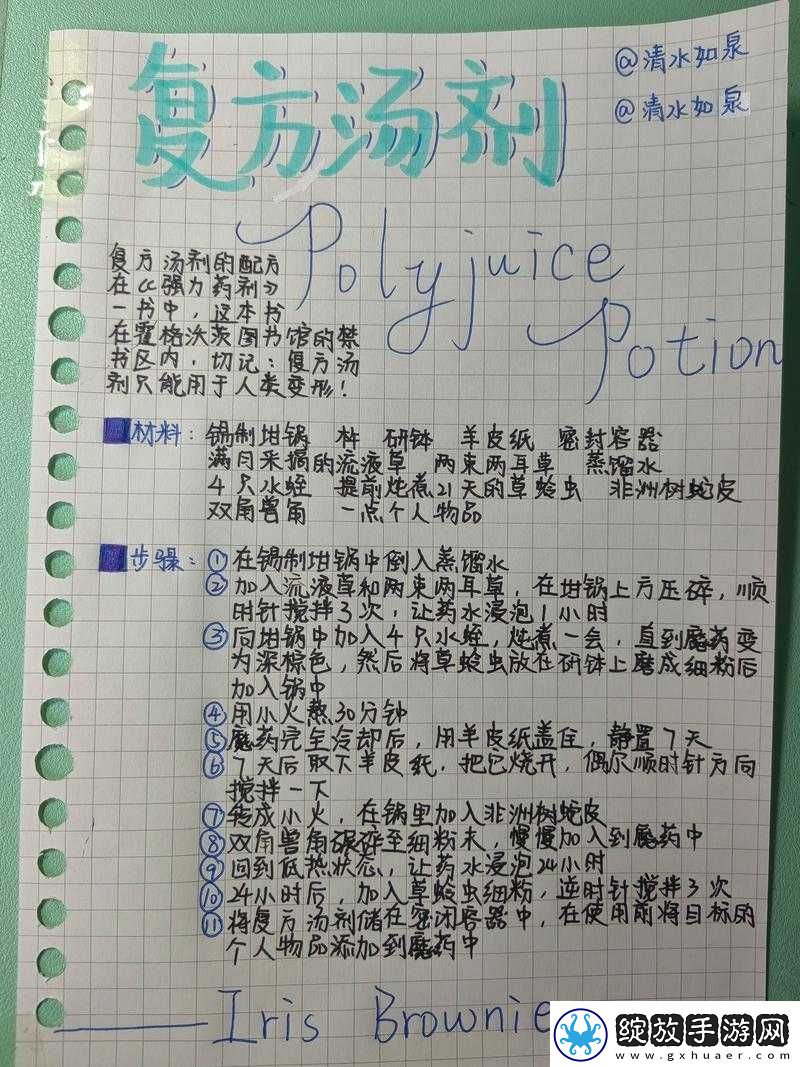 复方汤剂
@清水如泉
@清水如泉
Polyjuice
Potion
复方汤剂的配方
在《强力药剂》
一书中，这本书
在霍格沃茨图书馆的禁
书区内，切记：复方汤
剂只能用于人类变形！
材料：锡制坩锅 杵 研钵 羊皮纸 密封容器
满月采摘的流液草 两束两耳草 蒸馏水
4只水蛭 提前炖煮21天的草蛉虫 非洲树蛇皮
双角兽角 一点个人物品
步骤：①在锡制坩锅中倒入蒸馏水
②加入流液草和两束两耳草，在坩锅上方压碎，顺
时针搅拌3次，让药水浸泡1小时
③向坩锅中加入4只水蛭，炖煮一会，直到魔药变
为深棕色，然后将草蛉虫放在研钵上磨成细粉后
加入锅中
④用小火熬30分钟
⑤魔药完全冷却后，用羊皮纸盖住，静置7天
⑥7天后取下羊皮纸，把它烧开，偶尔顺时针方向
搅拌一下
⑦转成小火，在锅里加入非洲树蛇皮
⑧双角兽角碾碎至细粉末，慢慢加入到魔药中
⑨回到低热状态，让药水浸泡24小时
⑩24小时后，加入草蛉虫细粉，逆时针搅拌3次
⑪将复方汤剂储在密闭容器中，在使用前将目标的
个人物品添加到魔药中
——Iris Brownie
绽放手游网
www.gxhuaer.com